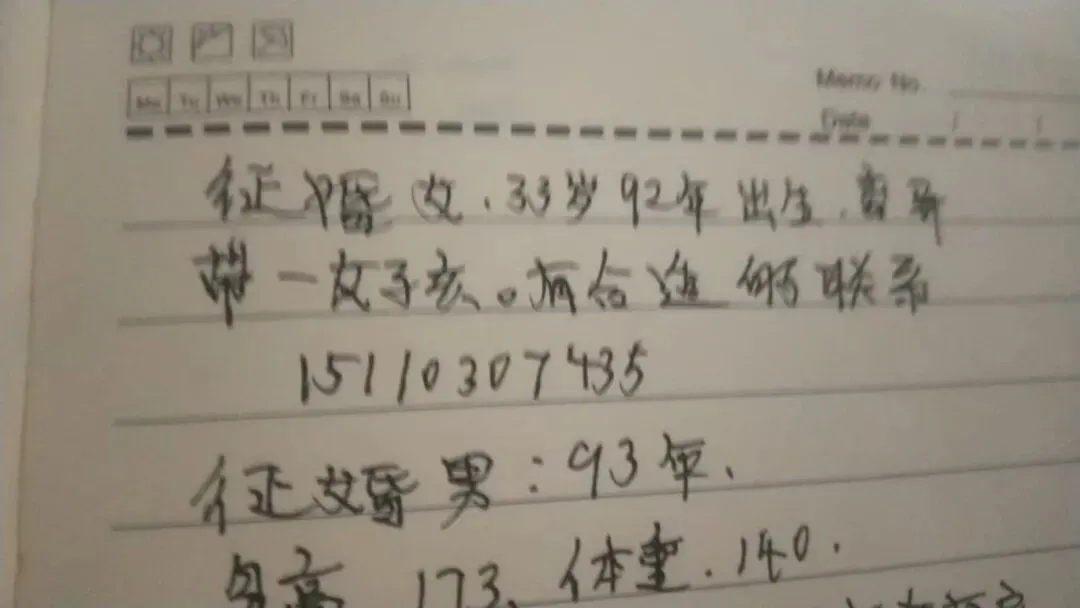 Mo Tu We Th Fr Sa Su
Memo No.
Date / /
征婚女.33岁92年出生.离异
带一女孩。有合适的联系
15110307435
征婚男:93年.
身高 173. 体重.140.